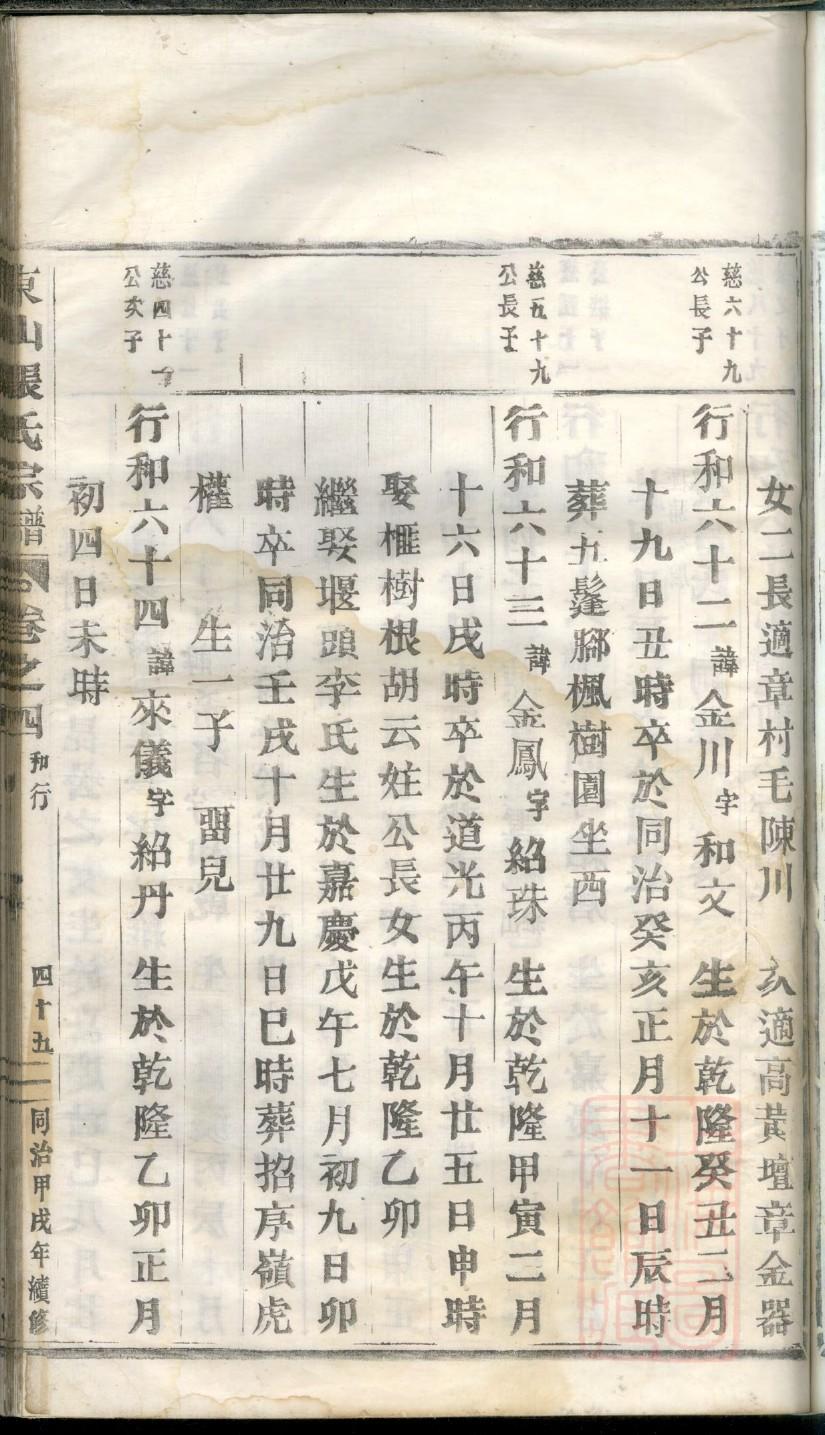 女二長適章村毛陳川　次適高黃壇章金器
慈六十九
公長子
行和六十二諱金川字和文　生於乾隆癸丑二月
十九日丑時卒於同治癸亥正月十一日辰時
葬五髼腳楓樹園坐西
慈五十九
公長子
行和六十三諱金鳳字紹珠　生於乾隆甲寅二月
十六日戌時卒於道光丙午十月廿五日申時
娶榧樹根胡云姓公長女生於乾隆乙卯
繼娶堰頭李氏生於嘉慶戊午七月初九日卯
時卒同治壬戌十月廿九日巳時葬招序嶺虎
權　生一子　畱兒
慈四十一
公次子
行和六十四諱來儀字紹丹　生於乾隆乙卯正月
初四日未時
東山張氏宗譜　卷之四　和行　四十五　同治甲戌年續修